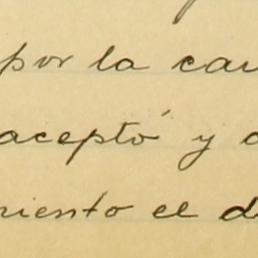 por la cau
aceptó y a
riento el d